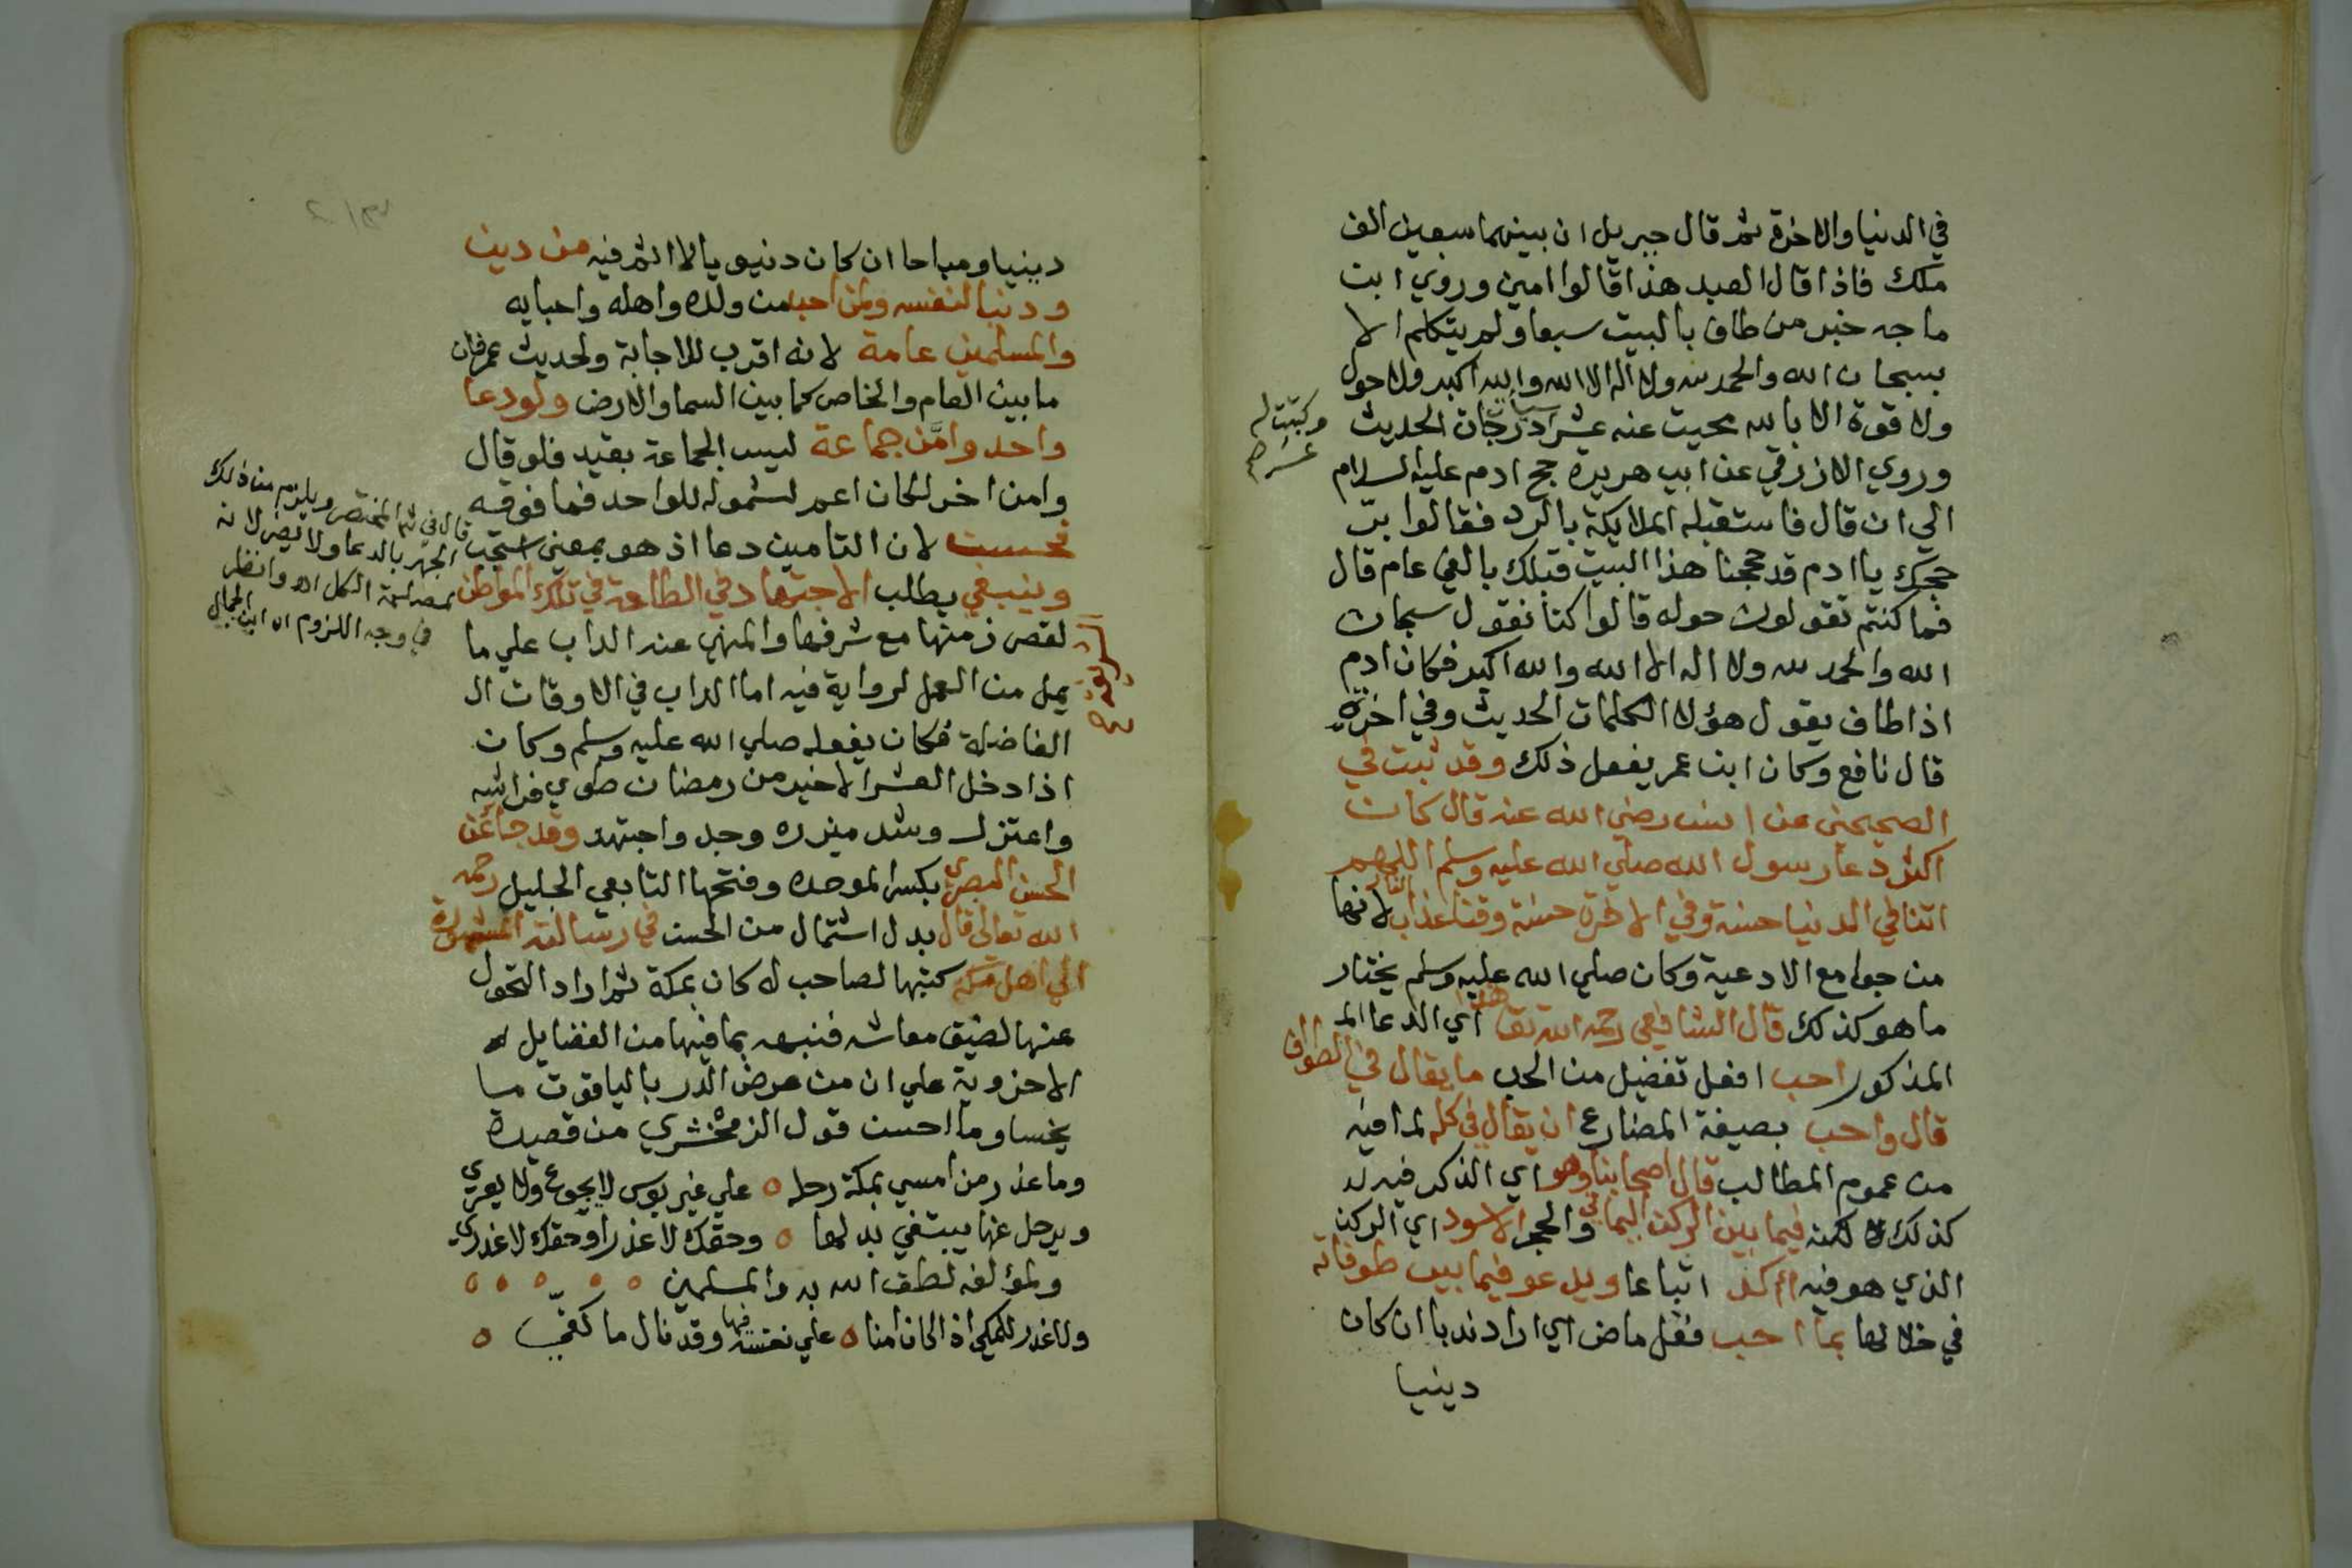 في الدنيا والاخرة ثم قال جبريل ان بينهما سبعين الف
ملك فاذا قال العبد هذا قالوا امين وروي ابن
ماجه خبر من طاف بالبيت سبعا ولم يتكلم الا
بسبحان الله والحمد لله ولا اله الا الله والله اكبر ولا حول
ولا قوة الا بالله محيت عنه عشر سيات درجات الحديث
وكتبت له
عشر
وروي الازرقي عن ابي هريرة حج ادم عليه السلام
الي ان قال فاستقبله الملايكة بالرد فقالوا بر
حجك يا ادم قد حججنا هذا البيت قبلك بالفي عام قال
فما كنتم تقولون حوله قالوا كنا نقول سبحان
الله والحمد لله ولا اله الا الله والله اكبر فكان ادم
اذا طاف يقول هؤلا الكلمات الحديث وفي اخره
قال نافع وكان ابن عمر يفعل ذلك وقد ثبت في
الصحيحين عن انس رضي الله عنه قال كان
اكثر دعا رسول الله صلي الله عليه وسلم اللهم
اتنا في الدنيا حسنة وفي الاخرة حسنة وقنا عذاب النار لانها
من جوامع الادعية وكان صلي الله عليه وسلم يختار
ما هو كذلك قال الشافعي رحمه الله تعا هذا اي الدعا الم
المذكور احب افعل تفضيل من الحب ما يقال في الطواف
قال واحب بصيغة المضارع ان يقال في كله لما فيه
من عموم المطالب قال اصحابنا وهو اي الذكر فيه لد
كذلك لكنه فيما بين الركن اليماني والحجر الاسود اي الركن
الذي هو فيه اكد اتباعا ويدعو فيما بين طوفاته
في خلالها بما احب فعل ماض اي اراد ندبا ان كان
دينيا
دينيا ومباحا ان كان دنيويا لا اثم فيه من دين
ودنيا لنفسه ولمن احب من ولده واهله واحبايه
والمسلمين عامة لانه اقرب للاجابة ولحديث عمر فان
ما بين العام والخاص كما بين السما والارض ولو دعا
واحد وامن جماعة ليس الجماعة بقيد فلو قال
وامن اخر لكان اعم لشموله للواحد فما فوقه
فحسن لان التامين دعا اذ هو بمعني استجب
وينبغي يطلب الاجتهاد في الطاعة في تلك المواطن
لقصر زمنها مع شرفها والمنهي عنه الداب علي ما
يمل من العمل لرواية فيه اما الداب في الاوقات ال
الفاضلة فكان يفعله صلي الله عليه وسلم وكان
اذا دخل العشر الاخير من رمضان طوي فراشه
واعتزل وشد ميزره وجد واجتهد وقد جا عن
الحسن البصري بكسر الموحدة وفتحها التابعي الجليل رحمه
الله تعالى قال بدل اشتمال من الحسن في رسالته المشهورة
الي اهل مكة كتبها لصاحب له كان بمكة ثم اراد التحول
عنها لضيق معاشه فنبهه بما فيها من الفضايل
الاخروية علي ان من عرض الدر بالياقوت ما
يخسا وما احسن قول الزمخشري من قصيدة
وما عذر من امسي بمكة رحله ه علي غير بوس لا يجوع ولا يعري
ويرحل عنها يبتغي بدلها ه وحقك لا عذرا وحقك لا عذري
ولمؤلفه لطف الله به والمسلمين ه ه ه ه ه
ولا عذر للمكي اذ الكان امنا ه علي نفسه فيها وقد نال ما كفي ه
قال في المختصر ويلزم من ذلك
الجهر بالدعا ولا يضر لانه
لمصلحة الكل اه وانظر
في وجه اللزوم اه ابن الجمال